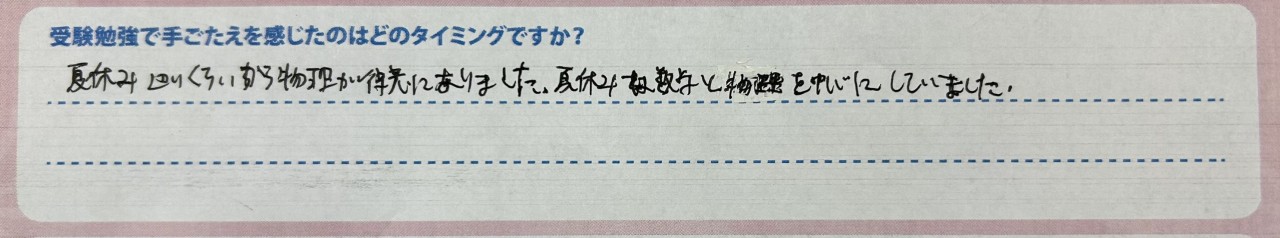 受験勉強で手ごたえを感じたのはどのタイミングですか?
夏休みぐらいから物理が得意になりました。夏休みは数学と物理を中心にしていました。